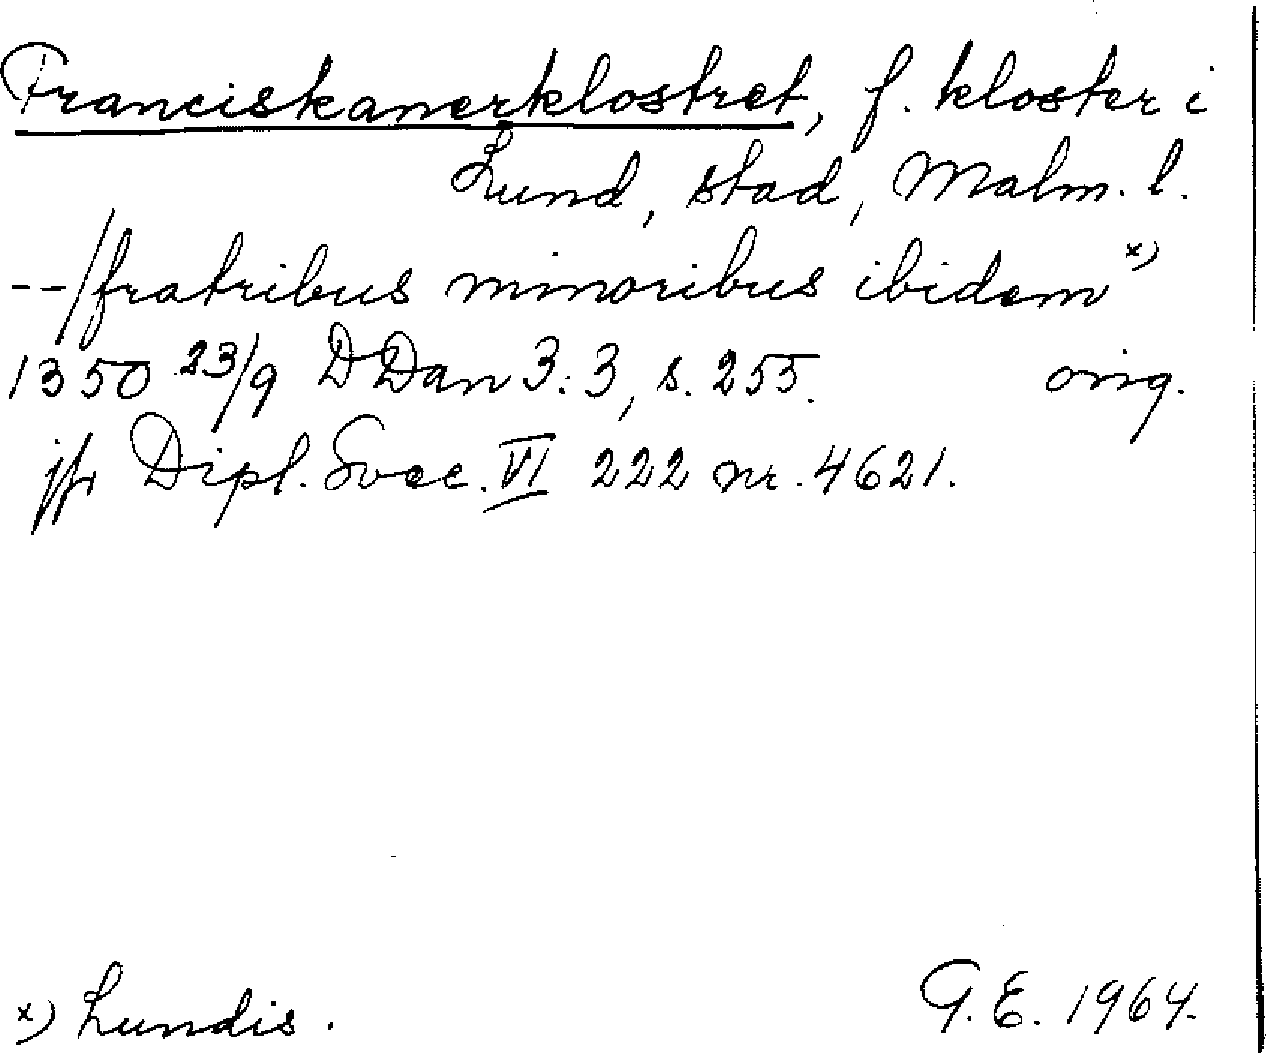 Franciskanerklostret, f. kloster i
Lund, stad, Malm. l.
--/fratribus minoribus ibidem x)
1350 23/9 DDan 3:3, s. 255. orig.
jfr Dipl. Svec. VI 222 nr. 4621.
x) Lundis.
G.E. 1964.